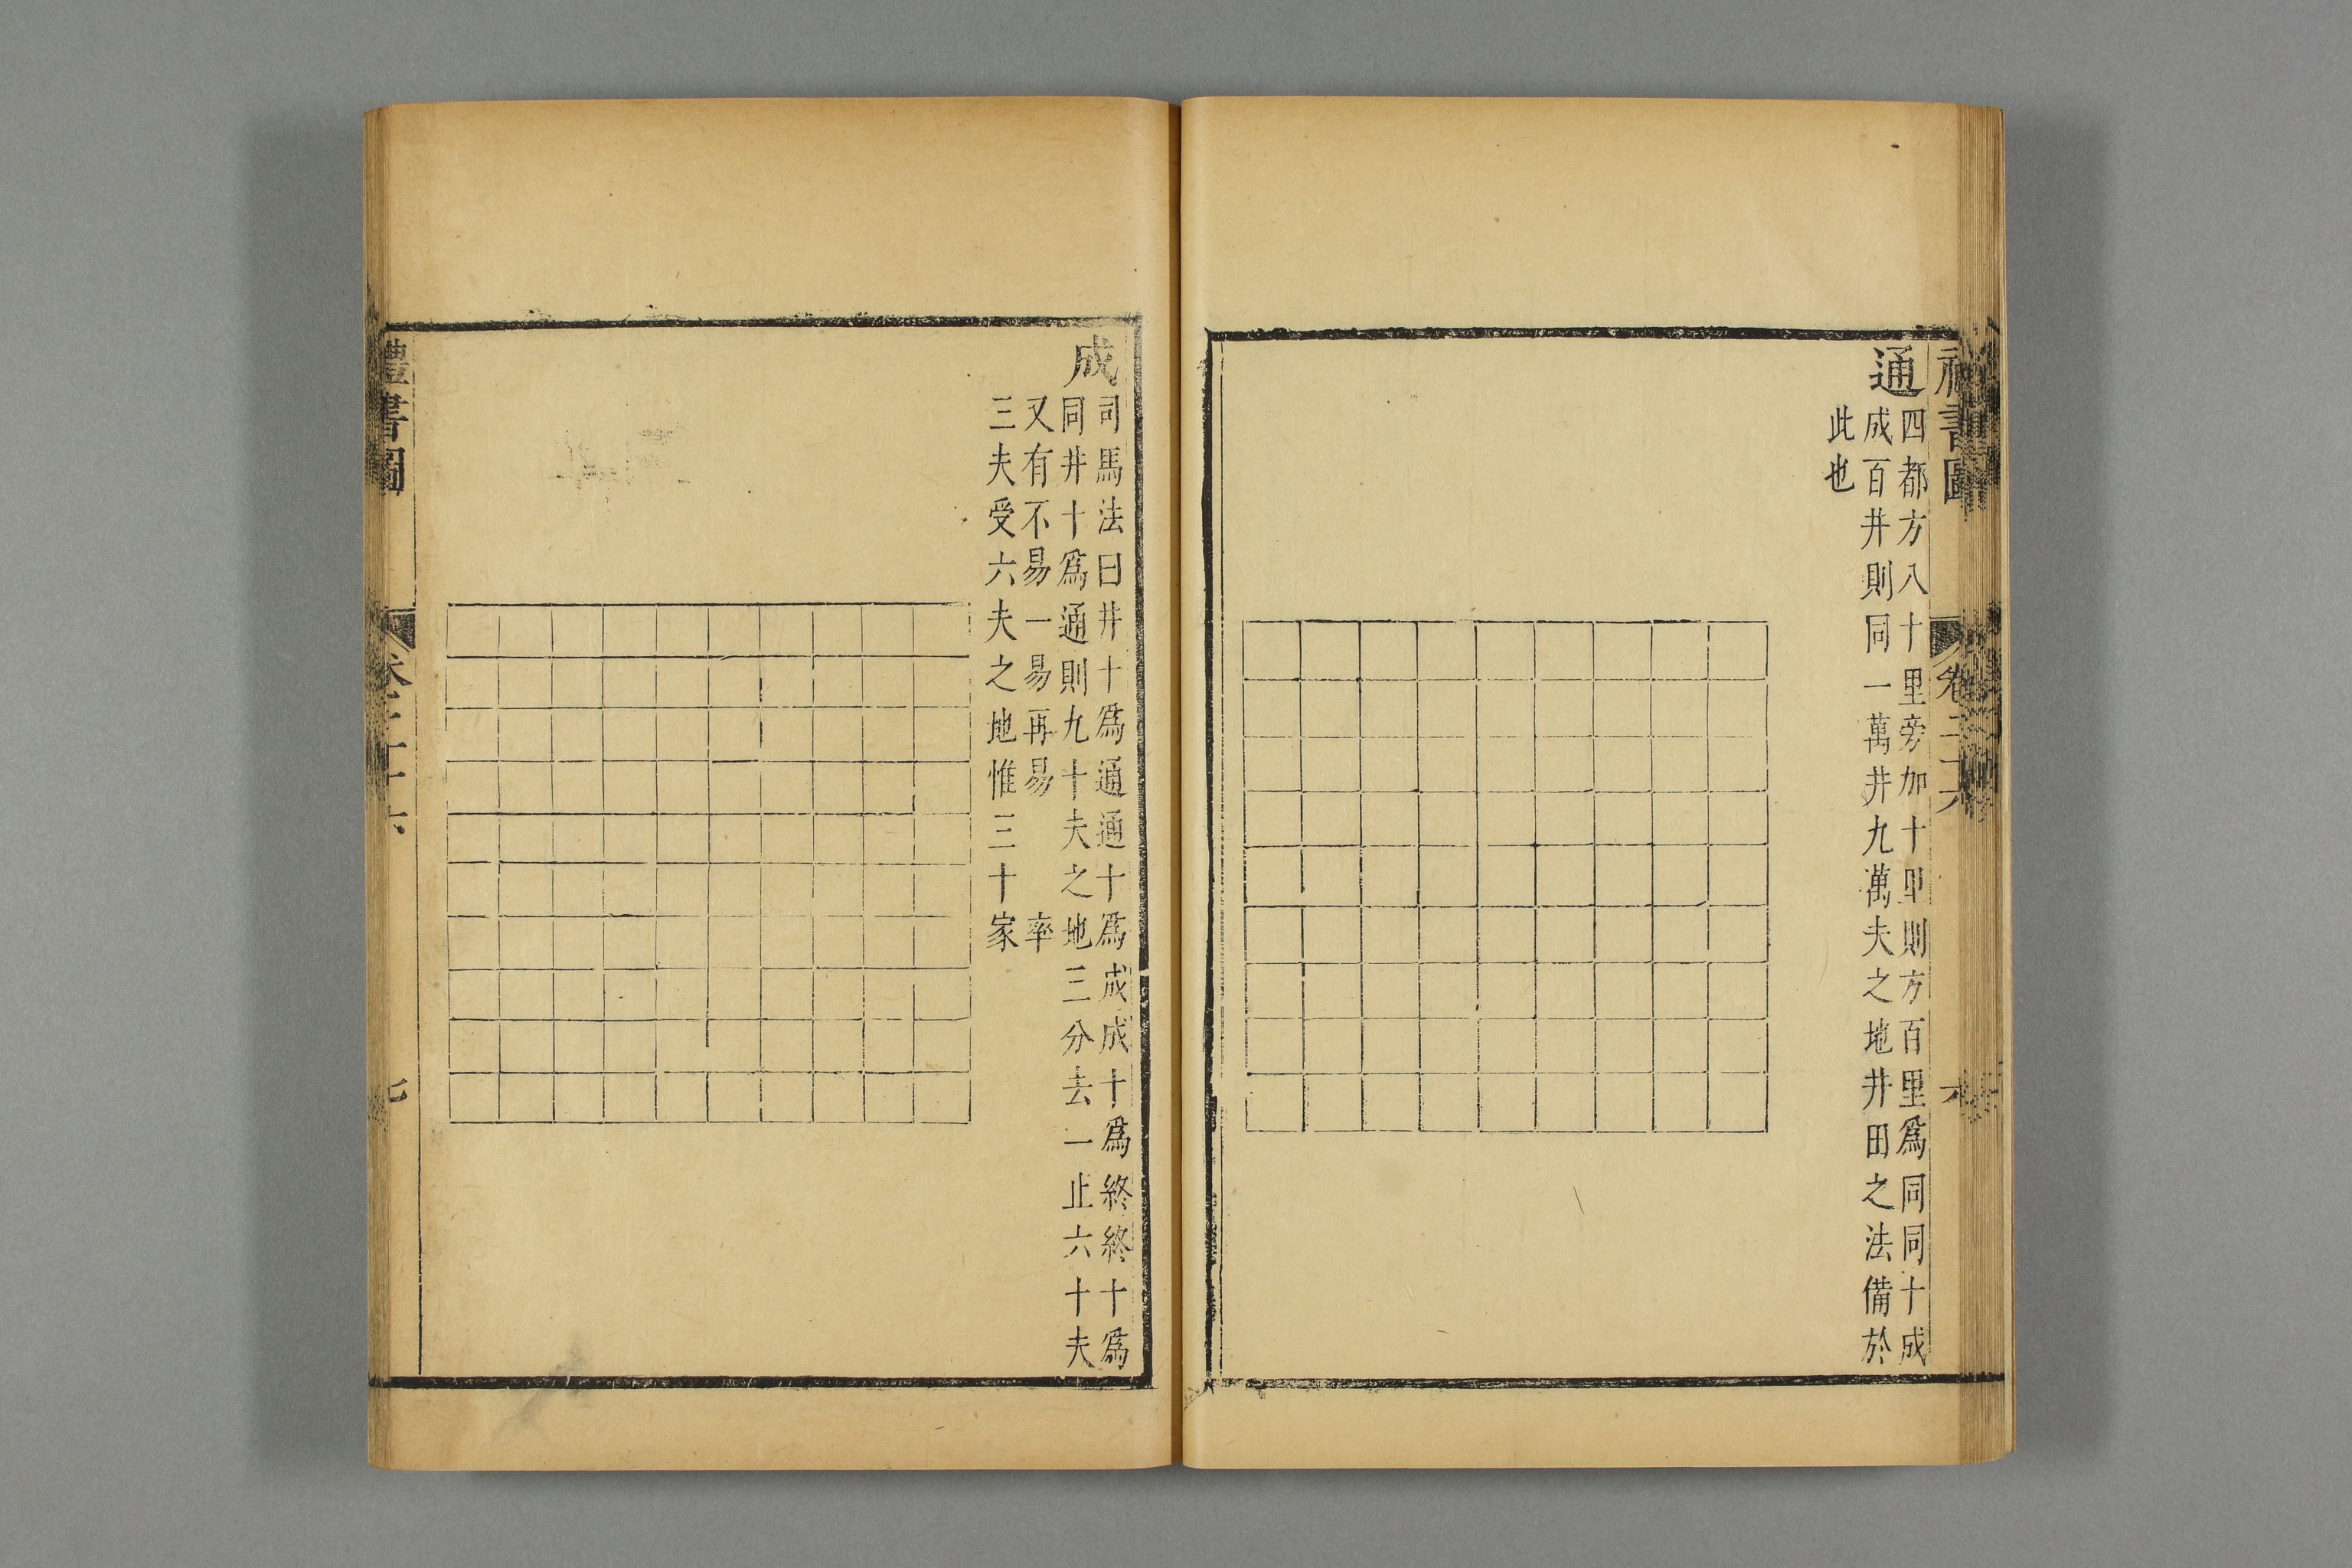 禮書圖 卷二十六 六
通
四都方八十里旁加十里則方百里爲同同十成
成百井則同一萬井九萬夫之地井田之法備於
此也
成
司馬法曰井十爲通通十爲成成十爲終終十爲
同井十爲通則九十夫之地三分去一止六十夫
又有不易一易再易 率
三夫受六夫之地惟三十家
禮書圖 卷二十六 七